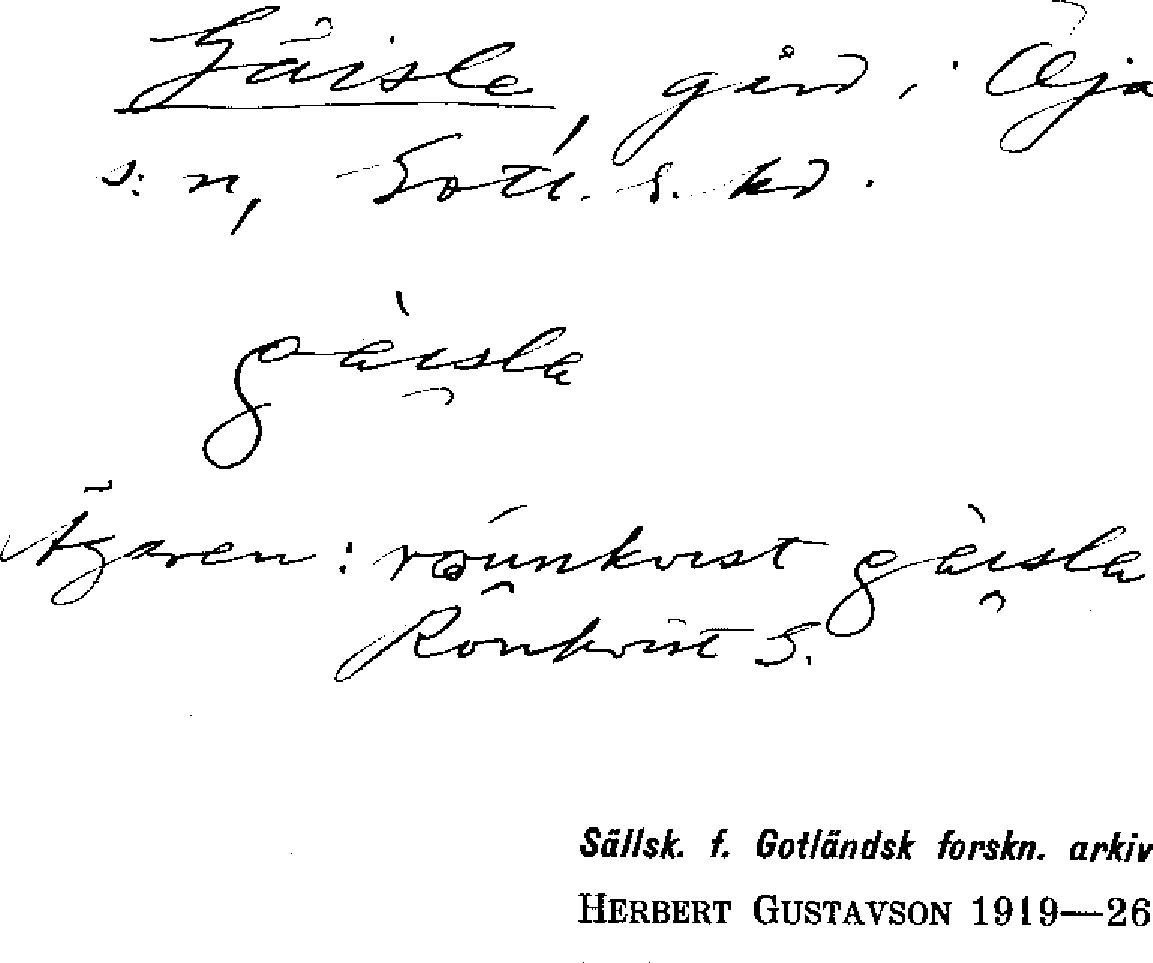 Gäisle, gård i Öja
s:n, Gotl. s. hd.
gàisla
Ägaren: róunkvist gàisla
Rônkvist G.
Sällsk. f. Gotländsk forskn. arkiv
HERBERT GUSTAVSON 1919—26